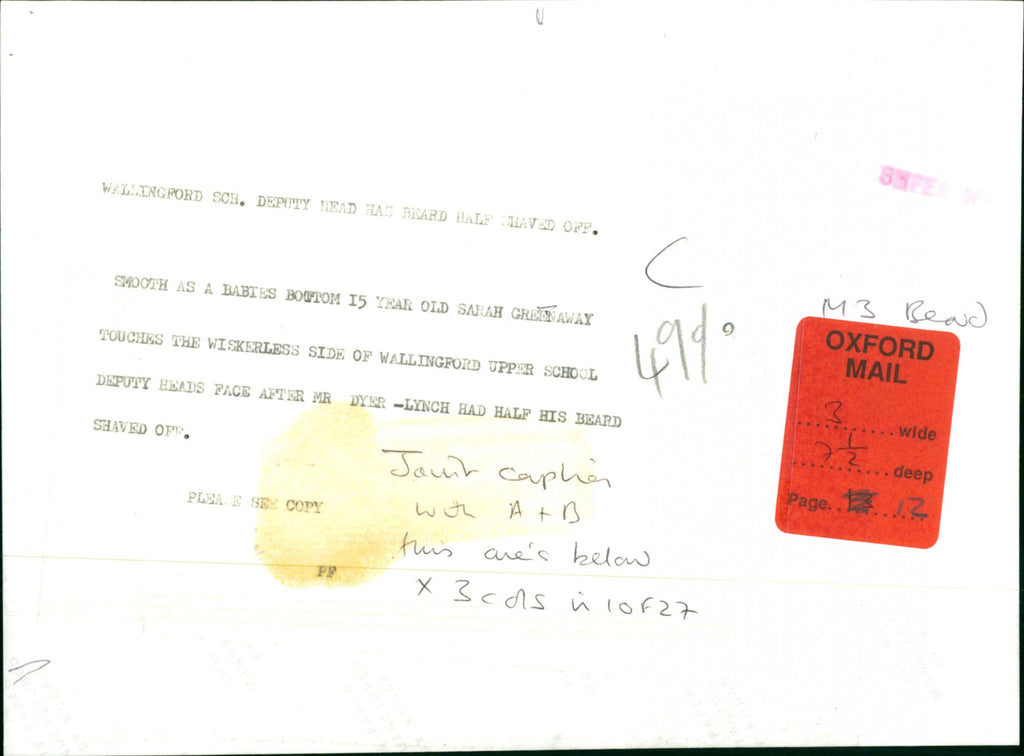 WALLINGFORD SCH. DEPUTY HEAD HAS BEARD HALF SHAVED OFF.
SMOOTH AS A BABIES BOTTOM 15 YEAR OLD SARAH GREENAWAY
TOUCHES THE WISKERLESS SIDE OF WALLINGFORD UPPER SCHOOL
DEPUTY HEADS FACE AFTER MR DYER -LYNCH HAD HALF HIS BEARD
SHAVED OFF.
PLEASE SEE COPY
PF
Joint caption
with A + B
this one's below
X 3 cols in 10F27
C
49%
M3 Beard
OXFORD
MAIL
3 wide
7 1/2 deep
Page 12
FEB